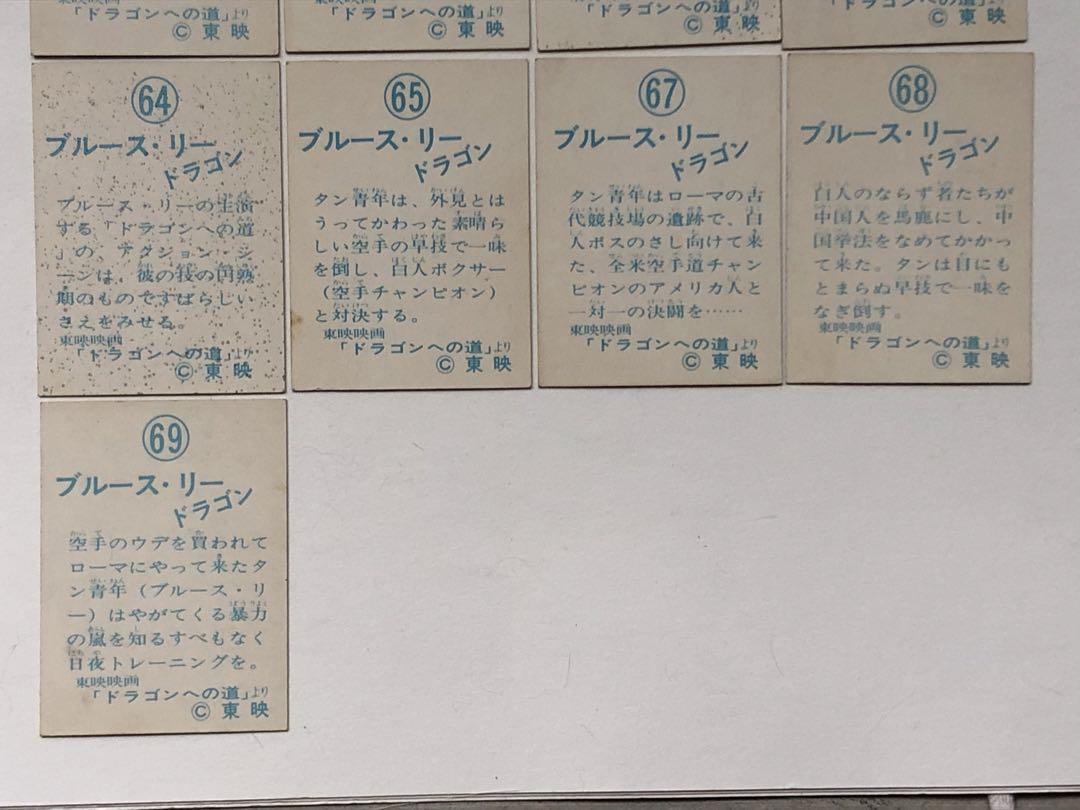 東映映画
「ドラゴンへの道」より
© 東映
東映映画
「ドラゴンへの道」より
© 東映
「ドラゴンへの道」より
© 東映
「ドラゴンへの道」より
© 東映
64
ブルース・リー
ドラゴン
ブルース・リーの主演
する「ドラゴンへの道
」の、アクション・シ
ーンは、彼の技の円熟
期のものですばらしい
さえをみせる。
東映映画
「ドラゴンへの道」より
© 東映
65
ブルース・リー
ドラゴン
タン青年は、外見とは
うってかわった素晴ら
しい空手の早技で一味
を倒し、白人ボクサー
(空手チャンピオン)
と対決する。
東映映画
「ドラゴンへの道」より
© 東映
67
ブルース・リー
ドラゴン
タン青年はローマの古
代競技場の遺跡で、白
人ボスのさし向けて来
た、全米空手道チャン
ピオンのアメリカ人と
一対一の決闘を……
東映映画
「ドラゴンへの道」より
© 東映
68
ブルース・リー
ドラゴン
白人のならず者たちが
中国人を馬鹿にし、中
国拳法をなめてかかっ
て来た。タンは目にも
とまらぬ早技で一味を
なぎ倒す。
東映映画
「ドラゴンへの道」より
© 東映
69
ブルース・リー
ドラゴン
空手のウデを買われて
ローマにやって来たタ
ン青年(ブルース・リ
ー)はやがてくる暴力
の嵐を知るすべもなく
日夜トレーニングを。
東映映画
「ドラゴンへの道」より
© 東映